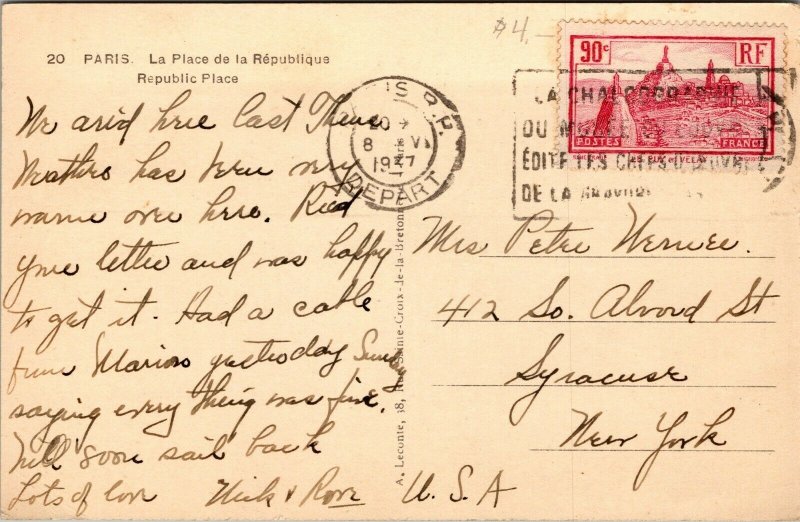 $4.—
20 PARIS. La Place de la République
Republic Place
We arid here last Thurs
Weather has been very
warm over here. Recd
your letter and was happy
to get it. Had a cable
from Marion yesterday Sunday
saying every thing was fine.
Will soon sail back
Lots of love Nick & Rose
A. Leconte, 38, Rue Sainte-Croix-de-la-Bretonnerie
20
8 VI
1937
DEPART
90c RF
POSTES FRANCE
LE PUY EN VELAY
LA CHALCOGRAPHIE
DU MUSEE DU LOUVRE
ÉDITE LES CHEFS D'ŒUVRE
DE LA GRAVURE
Mrs Peter
412 So. Alvord St
Syracuse
New York
U.S.A